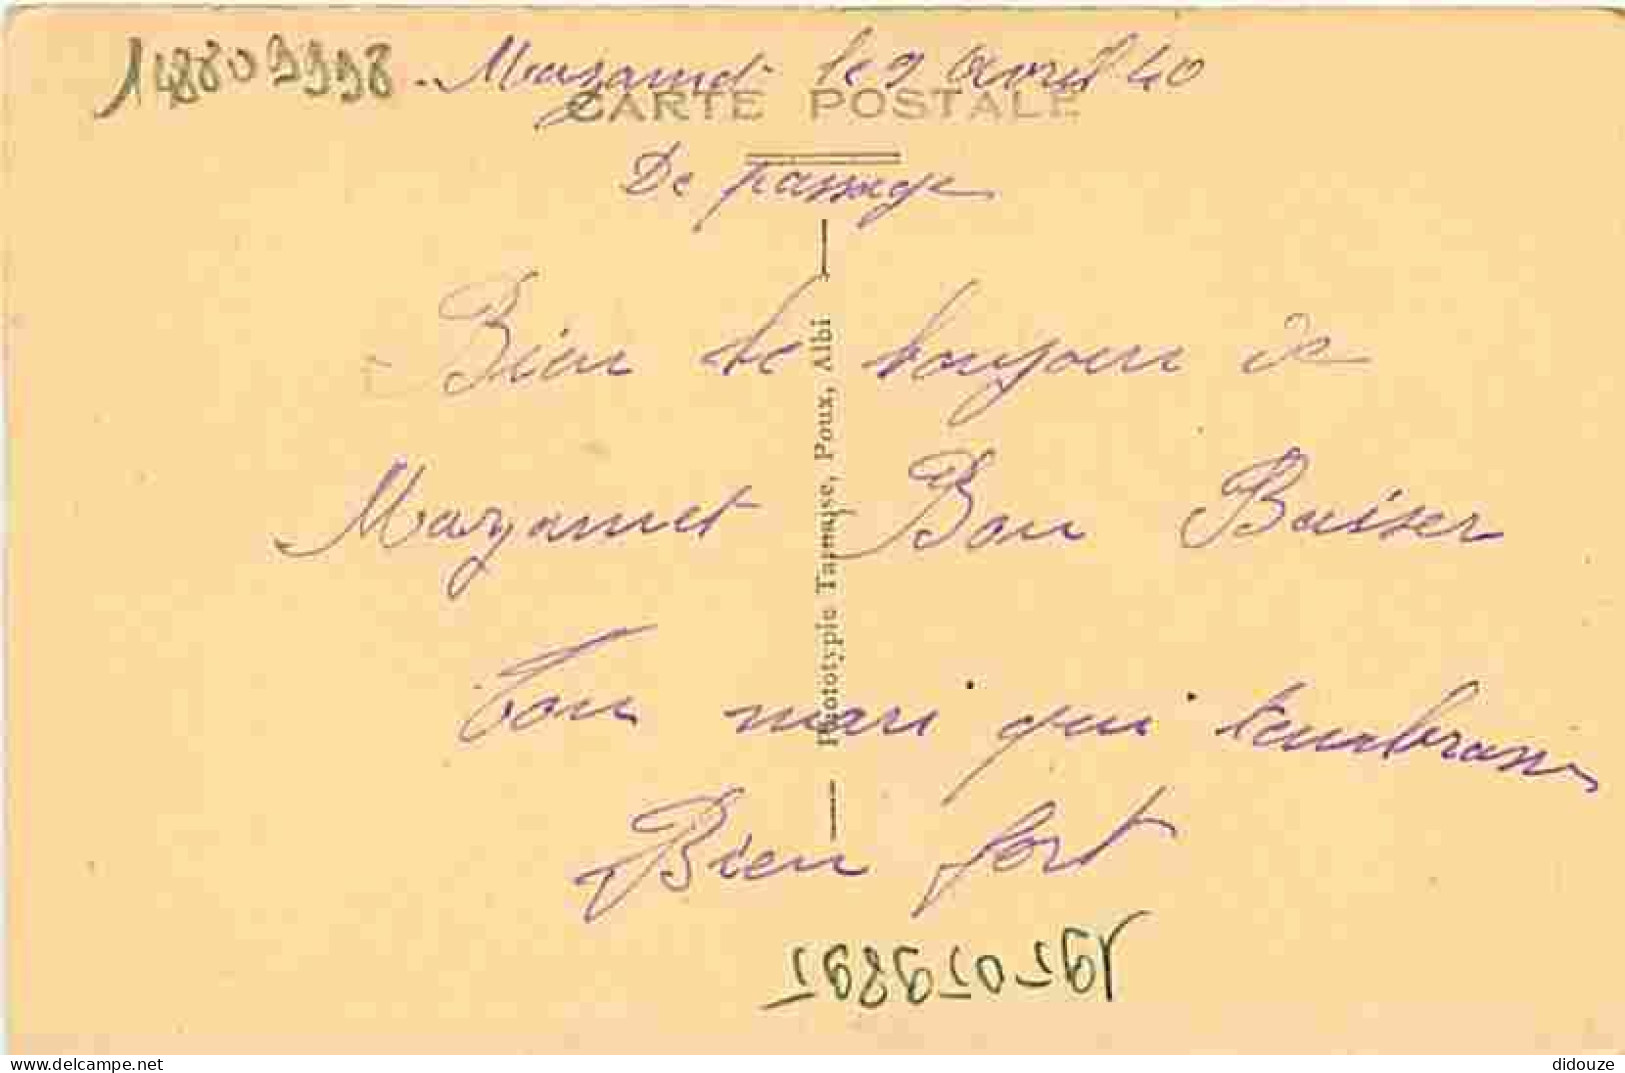 148809998 - Mazamet le 9 Avril 40
CARTE POSTALE
De passage
Bien de bonjour de
Mazamet Bon Baiser
Ton mari qui tembrasse
Bien fort
Phototypie Tarnaise, Poux, Albi
delcampe.net
didouze